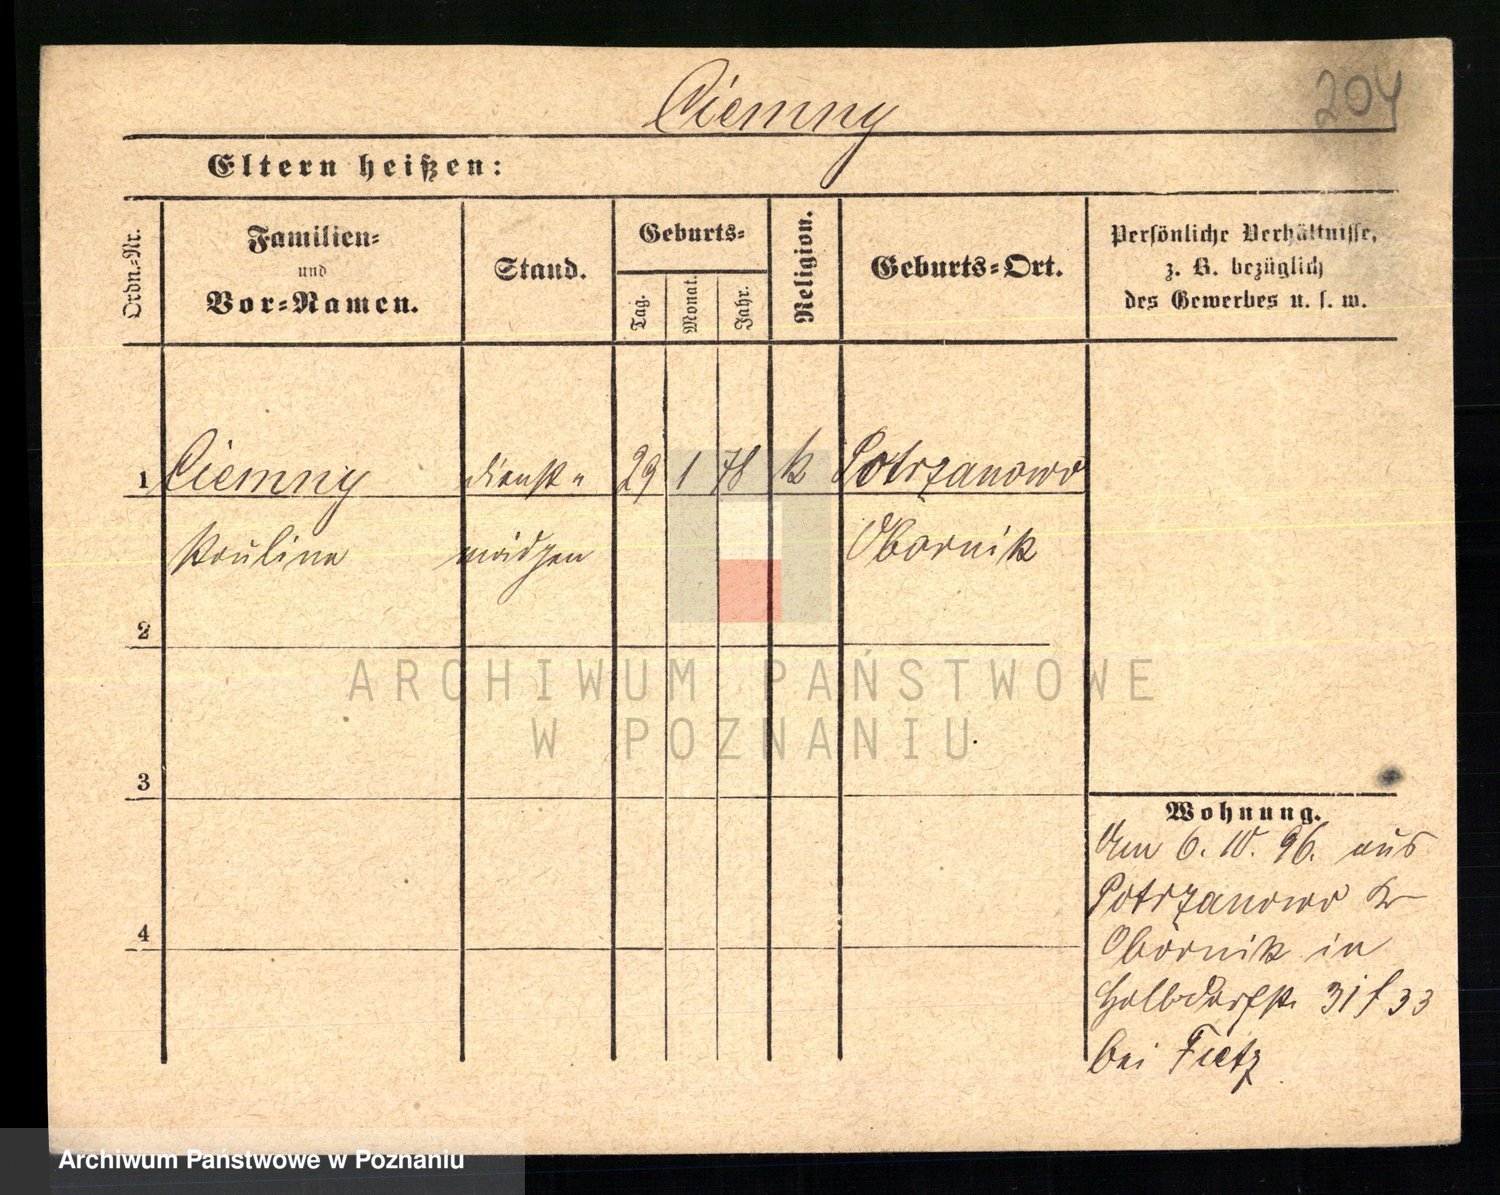 Ciemny
204
Eltern heißen:
Ordn.-Nr.
Familien-
und
Vor-Namen.
Stand.
Geburts-
Tag.
Monat.
Jahr.
Religion.
Geburts-Ort.
Persönliche Verhältnisse,
z. B. bezüglich
des Gewerbes u. s. w.
1 Ciemny dienst- 29 1 78 k Potrzanowo
Paulina mädchen Obornik
2
ARCHIWUM PAŃSTWOWE
W POZNANIU
3
4
Wohnung.
Am 6. 10. 96. aus
Potrzanowo Kr
Obornik in
Halbdorfstr. 31/33
bei Fietz
Archiwum Państwowe w Poznaniu